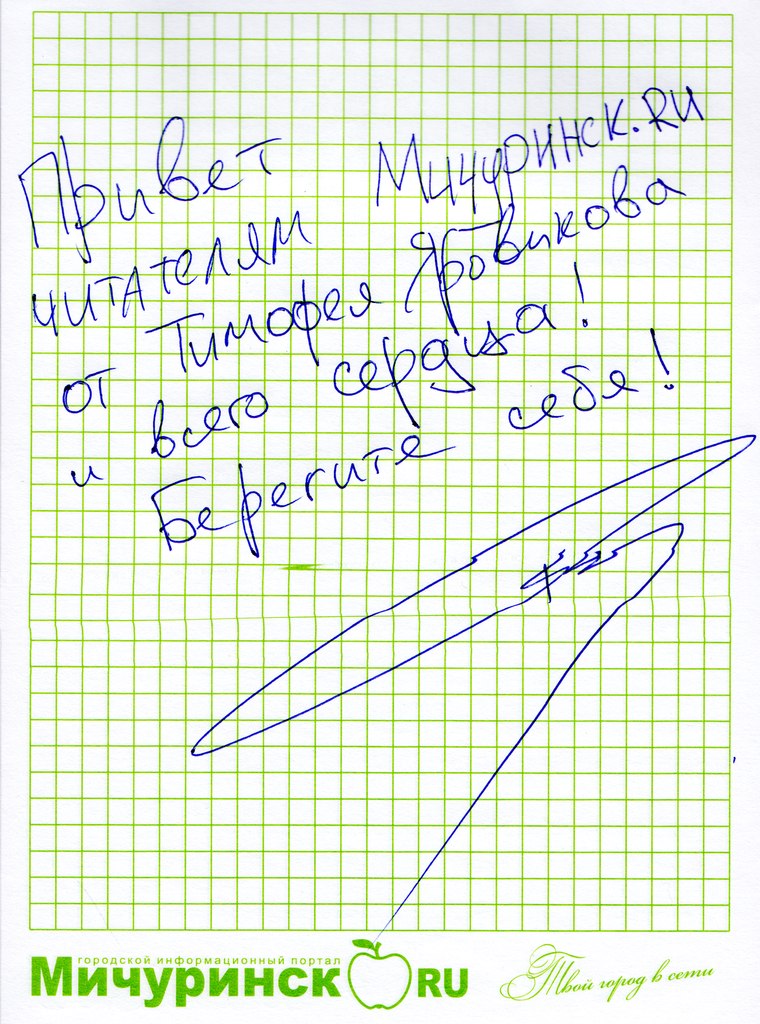 Привет Мичуринск.RU
читателям
от Тимофея Яровикова
и всего сердца!
Берегите себя!
городской информационный портал
Мичуринск RU
Твой город в сети